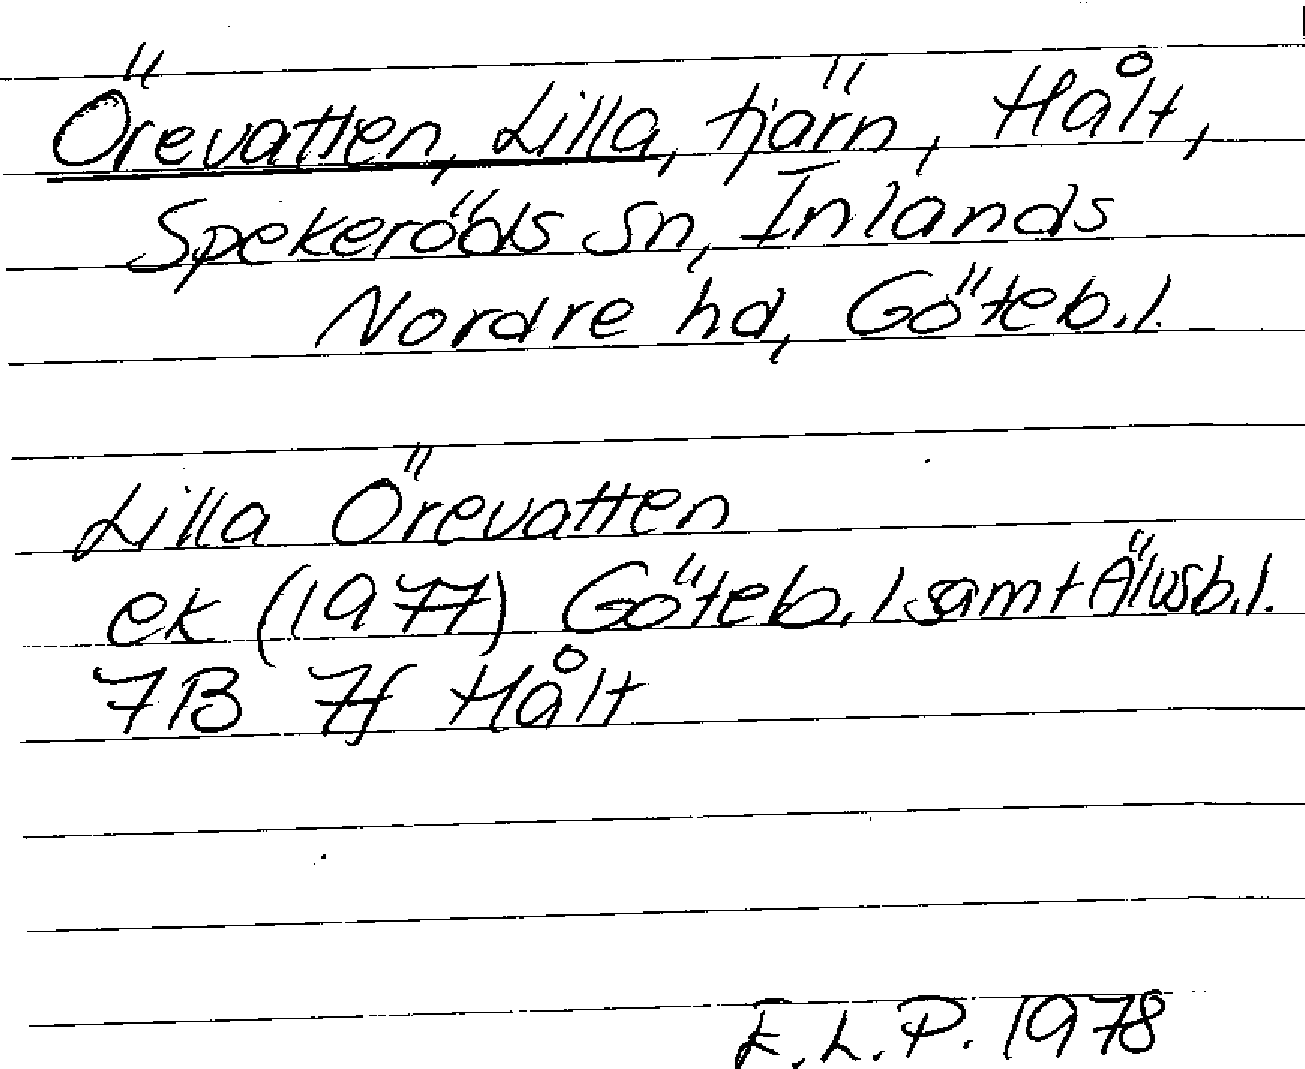 Örevatten, Lilla, tjärn, Hålt,
Spekeröds sn, Inlands
Nordre hd, Göteb.l.
Lilla Örevatten
ek (1977) Göteb. l samt Älvsb.l.
7B 7f Hålt
E.L.P. 1978